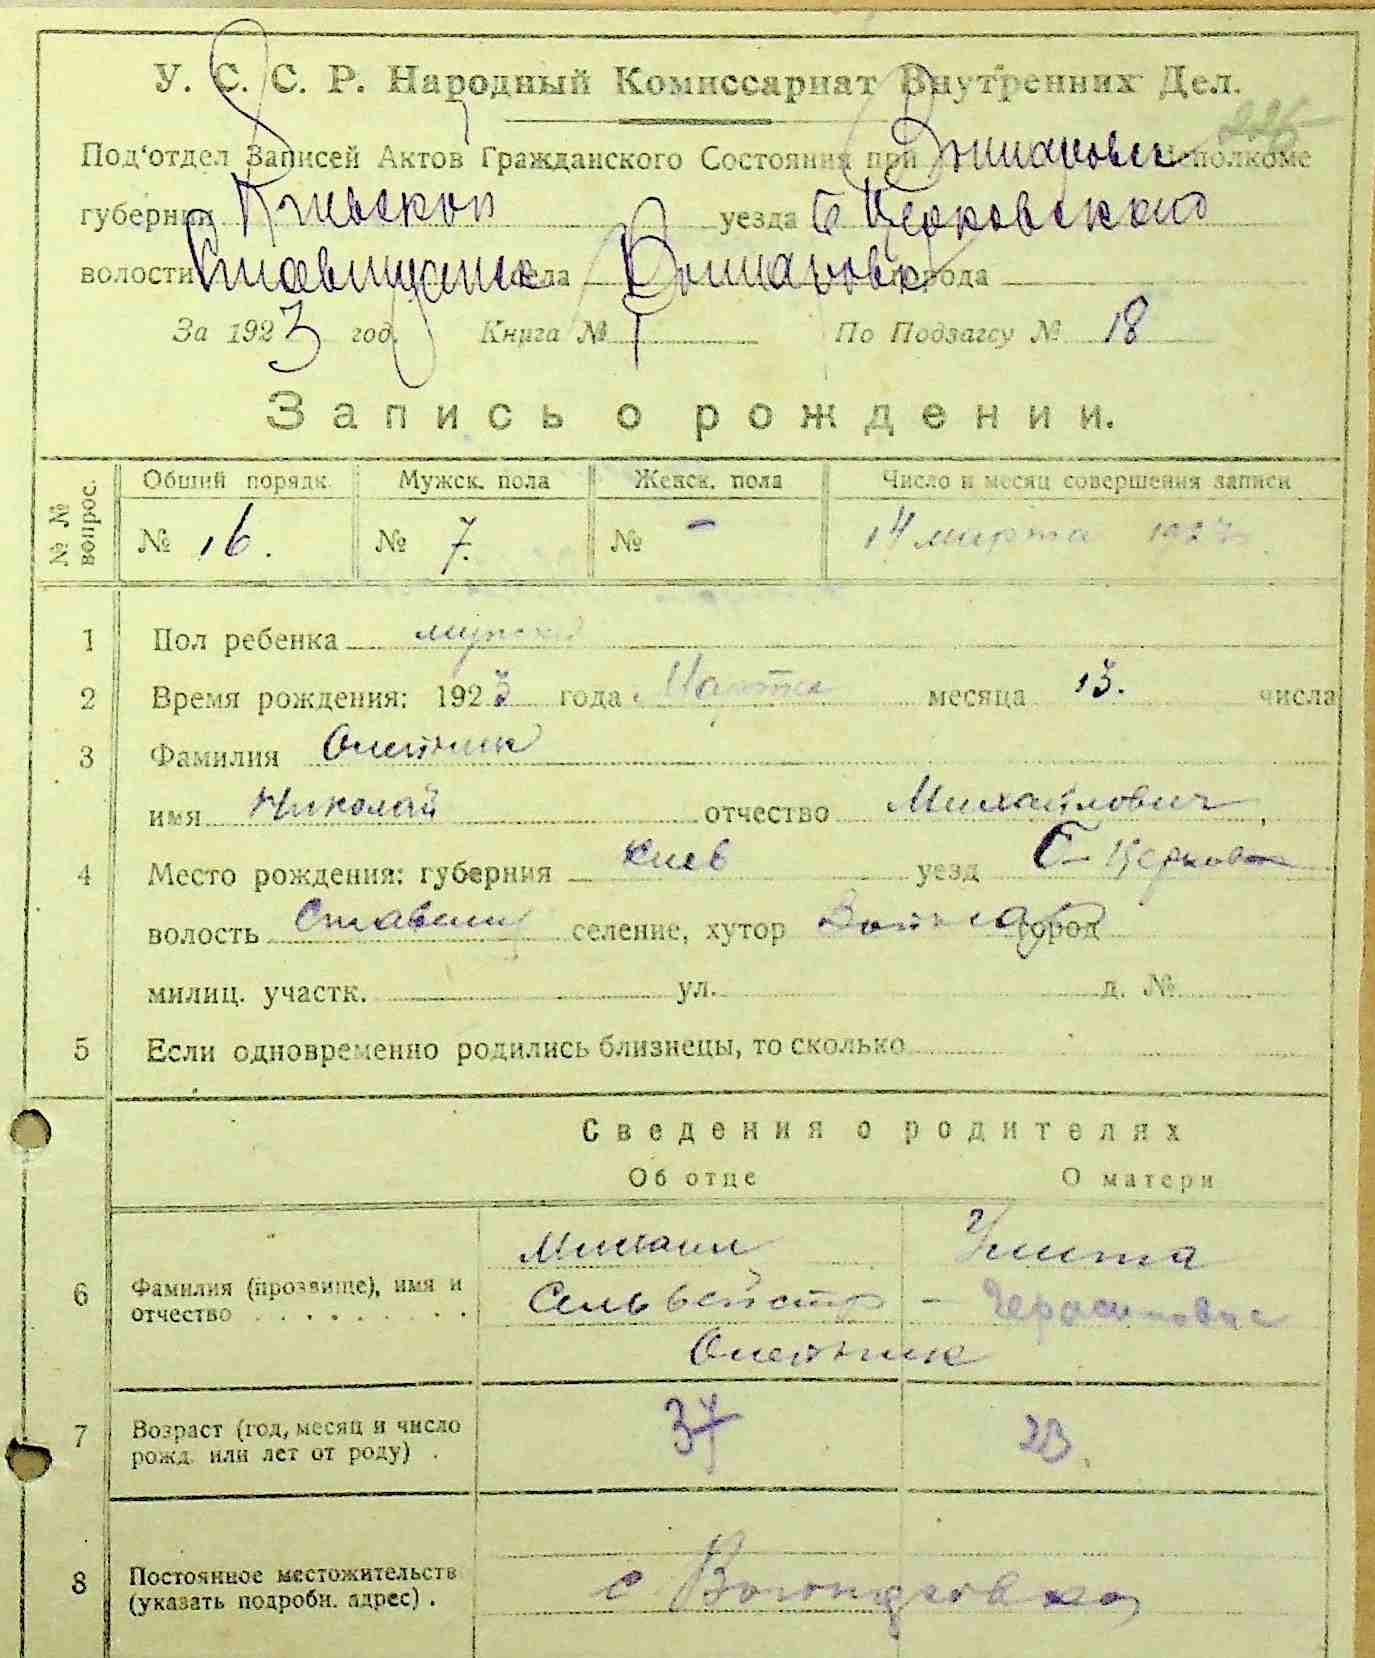 У. С. С. Р. Народный Комиссариат Внутренних Дел.
225
Под'отдел Записей Актов Гражданского Состояния при Исполкоме
губернии Киевской уезда Б Церковского
волости села города
За 1923 год. Книга № I По Подзагсу № 18
Запись о рождении.
№ № вопрос.
Общий порядк. Мужск. пола Женск. пола Число и месяц совершения записи
№ 16. № 7. № - 14 марта 1923
1 Пол ребенка мужской
2 Время рождения: 1923 года Марта месяца 13. числа
3 Фамилия Олейник
имя Николай отчество Михайлович,
4 Место рождения: губерния Киев уезд Б-Церков
волость Ставищ селение, хутор город
милиц. участк. ул. д. №
5 Если одновременно родились близнецы, то сколько
Сведения о родителях
Об отце О матери
6 Фамилия (прозвище), имя и отчество
Михаил Улита
Сельвестр - Герасимовна
Олейник
7 Возраст (год, месяц и число рожд. или лет от роду) . 34 23.
8 Постоянное местожительств (указать подробн. адрес) . с